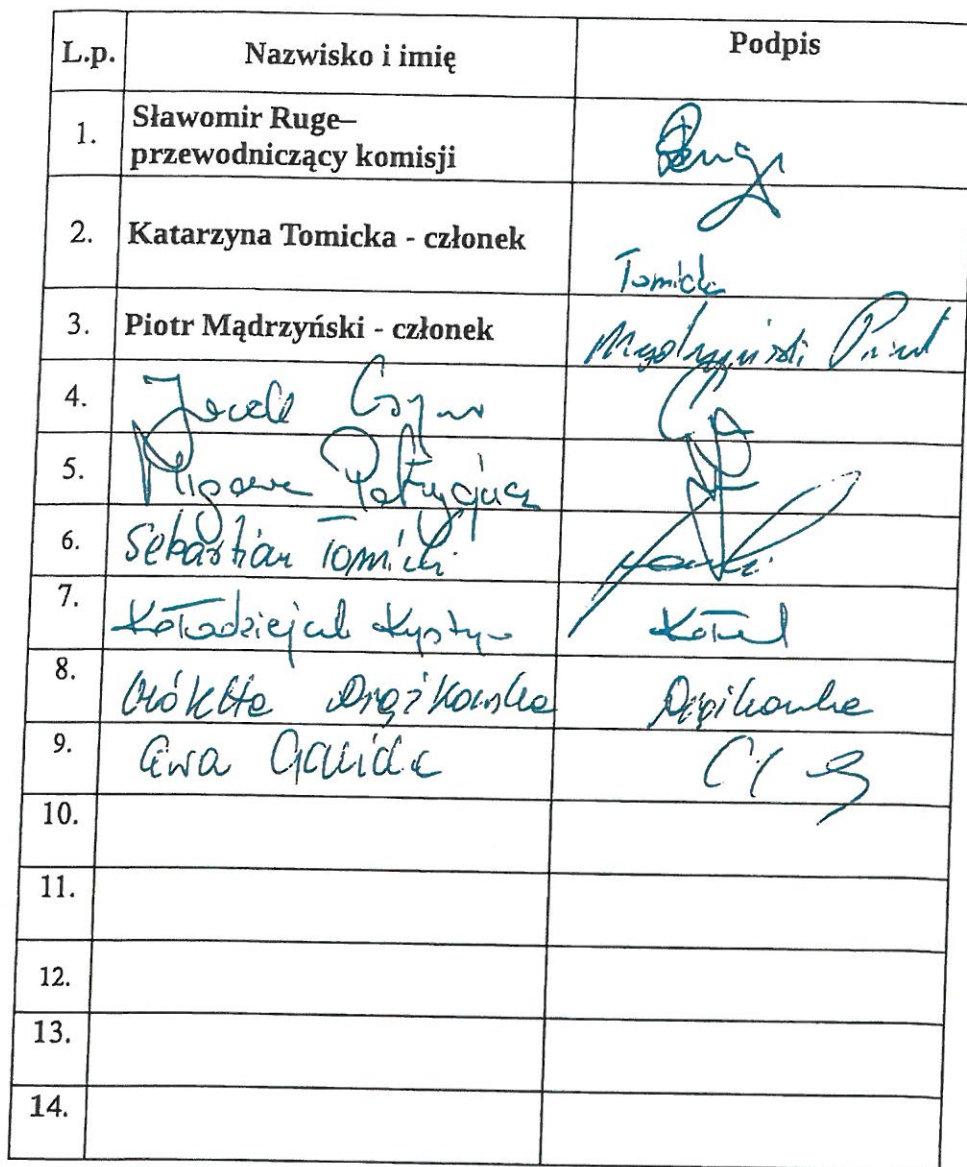 L.p. Nazwisko i imię Podpis
1. Sławomir Ruge–
przewodniczący komisji
2. Katarzyna Tomicka - członek
Tomicka
3. Piotr Mądrzyński - członek Mądrzyński Piotr
4. Jacek
5. Patrycjusz
6. Sebastian Tomicki
7. Kołodziejak Krystyna
8. Wioletta Drążkowska Drążkowska
9. Ewa Gawida
10.
11.
12.
13.
14.